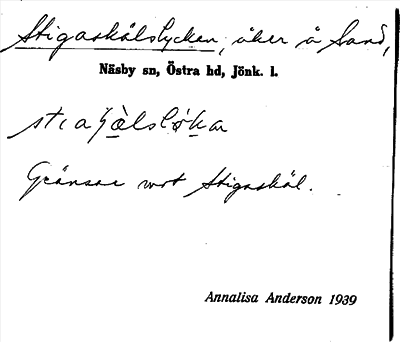 Stigaskälslycken, åker å Sand,
Näsby sn, Östra hd, Jönk. l.
Gränsar mot Stigaskäl.
Annalisa Anderson 1939